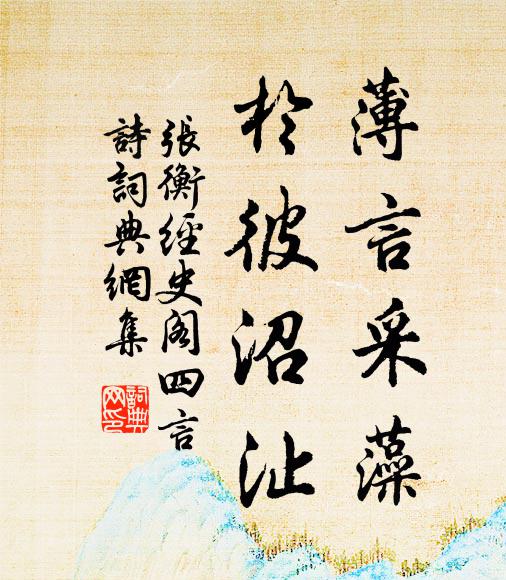 薄言采藻
於彼沼沚
張衡經史閣四言
詩詞典網集
詞典网印